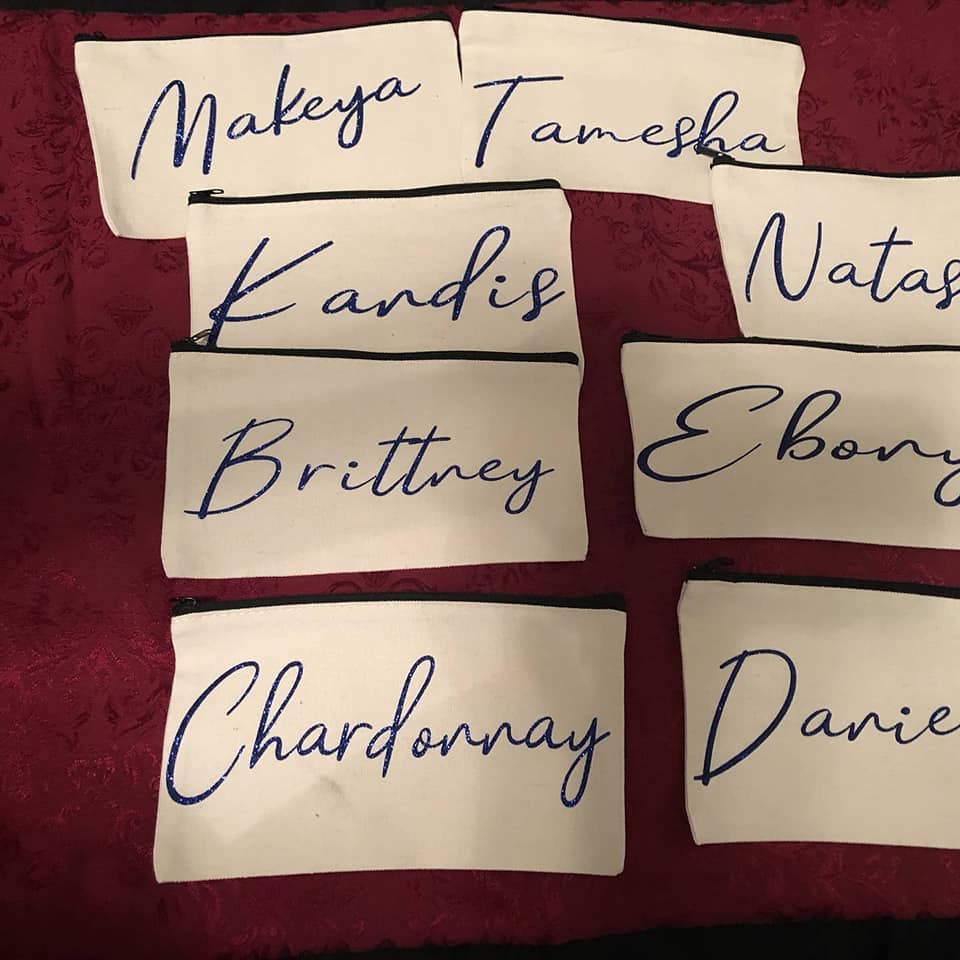 Makeya
Tamesha
Kandis
Natas
Brittney
Ebony
Chardonnay
Danie